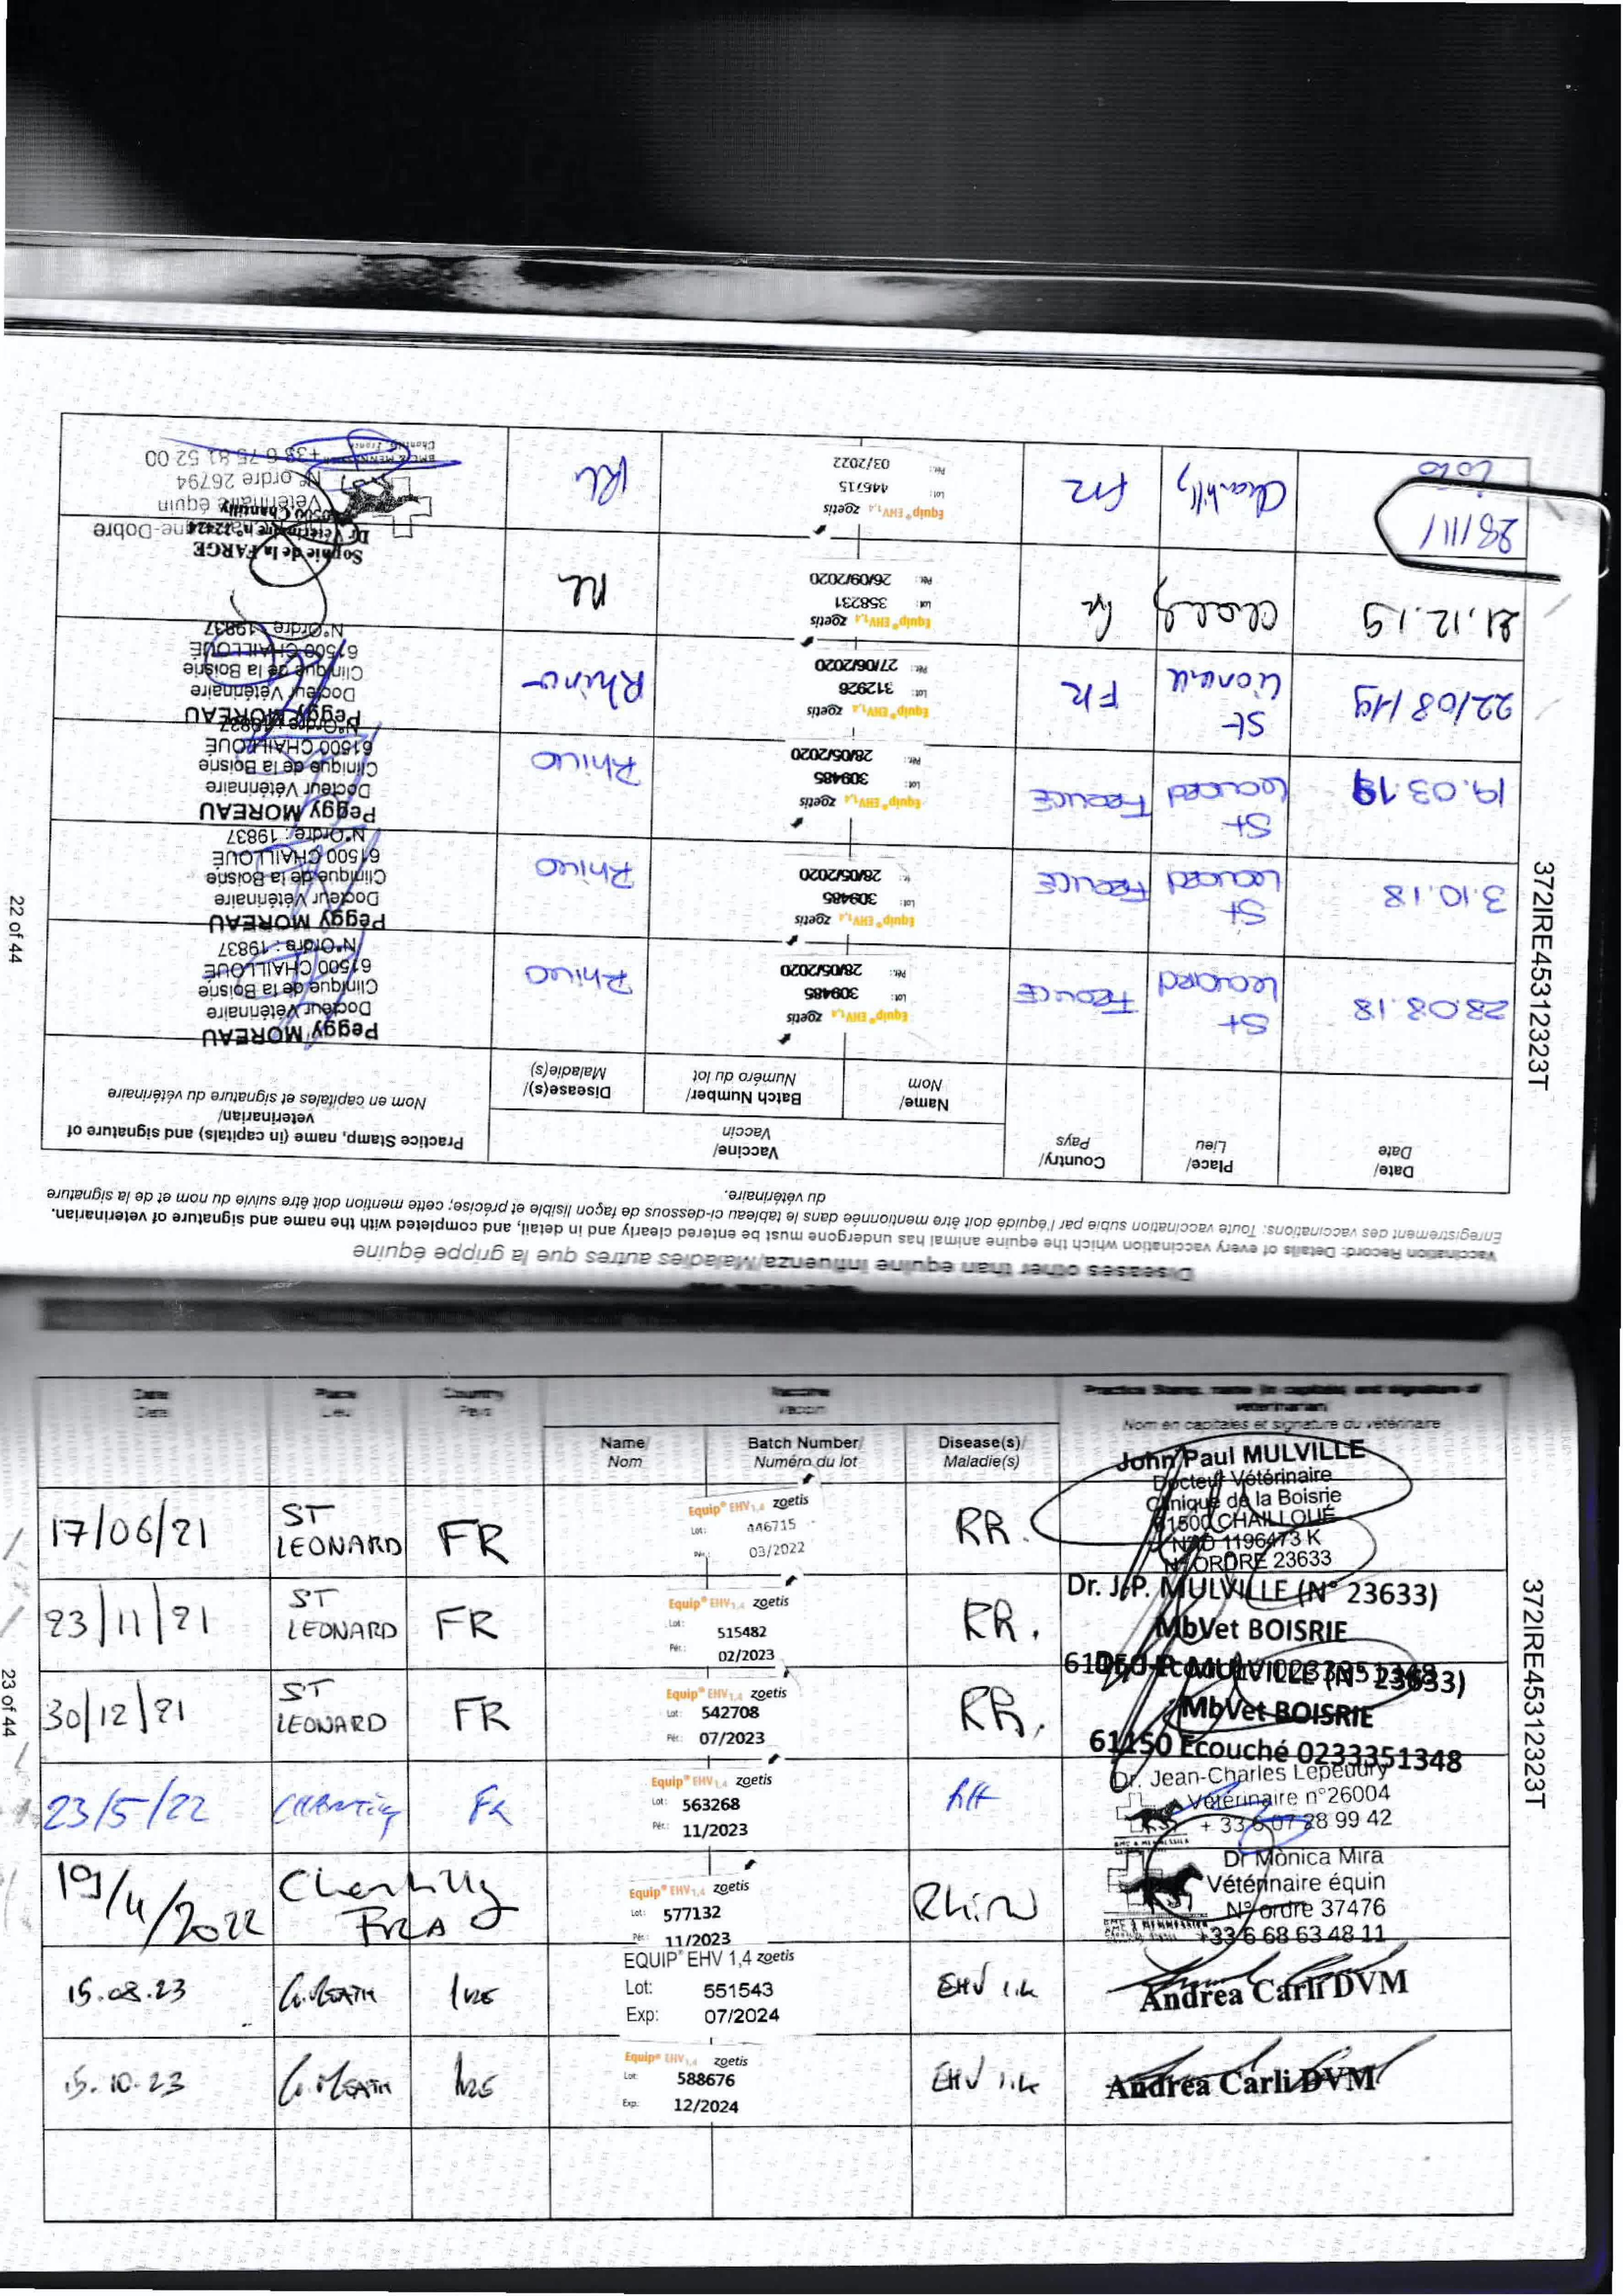 Diseases other than equine influenza/Maladies autres que la grippe équine
Vaccination Record: Details of every vaccination which the equine animal has undergone must be entered clearly and in detail, and completed with the name and signature of veterinarian.
Enregistrement des vaccinations: Toute vaccination subie par l'équidé doit être mentionnée dans le tableau ci-dessous de façon lisible et précise; cette mention doit être suivie du nom et de la signature
du vétérinaire.
Date/
Date
Place/
Lieu
Country/
Pays
Vaccine/
Vaccin
Name/
Nom
Batch Number/
Numéro du lot
Disease(s)/
Maladie(s)
Practice Stamp, name (in capitals) and signature of
veterinarian/
Nom en capitales et signature du vétérinaire
28.08.18
St
Leonard
France
Equip® EHV1,4 zoetis
Lot: 309485
Pér.: 28/05/2020
Rhino
Peggy MOREAU
Docteur Vétérinaire
Clinique de la Boisrie
61500 CHAILLOUE
N°Ordre : 19837
3.10.18
St
Leonard
France
Equip® EHV1,4 zoetis
Lot: 309485
28/05/2020
Rhino
Peggy MOREAU
Docteur Vétérinaire
Clinique de la Boisrie
61500 CHAILLOUE
N°Ordre : 19837
19.03.19
St
Leonard
France
Equip® EHV1,4 zoetis
Lot: 309485
Pér.: 28/05/2020
Rhino
Peggy MOREAU
Docteur Vétérinaire
Clinique de la Boisrie
61500 CHAILLOUE
N°Ordre : 19837
22/08/19
St
Léonard
FR
Equip® EHV1,4 zoetis
Lot: 312926
Pér.: 27/06/2020
Rhino
Peggy MOREAU
Docteur Vétérinaire
Clinique de la Boisrie
61500 CHAILLOUE
N°Ordre : 19837
21.12.19
Equip® EHV1,4 zoetis
Lot: 358231
Pér.: 26/09/2020
Sophie de la FARGE
Vétérinaire n° 22424
60500 Chantilly
28/11/
2020
Chantilly
FR
Equip® EHV1,4 zoetis
Lot: 446715
Pér.: 03/2022
Vétérinaire équin
N° ordre 26794
+33 6 75 81 52 00
372IRE45312323T
22 of 44
Date
Date
Place
Lieu
Country
Pays
Vaccine
Vaccin
Practice Stamp, name (in capitals) and signature of
veterinarian
Nom en capitales et signature du vétérinaire
Name/
Nom
Batch Number/
Numéro du lot
Disease(s)/
Maladie(s)
17/06/21
ST
LEONARD
FR
Equip® EHV1,4 zoetis
Lot: 446715
03/2022
RR.
John Paul MULVILLE
Docteur Vétérinaire
Clinique de la Boisrie
61500 CHAILLOUÉ
N° ORDRE 23633
23/11/21
ST
LEONARD
FR
Equip® EHV1,4 zoetis
Lot: 515482
Pér.: 02/2023
RR.
Dr. J.P. MULVILLE (N° 23633)
MbVet BOISRIE
30/12/21
ST
LEONARD
FR
Equip® EHV1,4 zoetis
Lot: 542708
Pér.: 07/2023
RR.
MULVILLE (N° 23633)
MbVet BOISRIE
61150 Ecouché 0233351348
23/5/22
Chantilly
FR
Equip® EHV1,4 zoetis
Lot: 563268
Pér.: 11/2023
Dr. Jean-Charles Lepeudry
Vétérinaire n°26004
+ 33 6 07 28 99 42
19/4/2022
Chantilly
FRA
Equip® EHV1,4 zoetis
Lot: 577132
Pér.: 11/2023
Rhino
Dr Mònica Mira
Vétérinaire équin
N° ordre 37476
+33 6 68 63 48 11
15.08.23
Co.MEATH
IRE
EQUIP® EHV 1,4 zoetis
Lot: 551543
Exp: 07/2024
EHV 1.4
Andrea Carli DVM
15.10.23
Co.MEATH
IRE
Equip® EHV1,4 zoetis
Lot: 588676
Exp: 12/2024
EHV 1.4
Andrea Carli DVM
372IRE45312323T
23 of 44